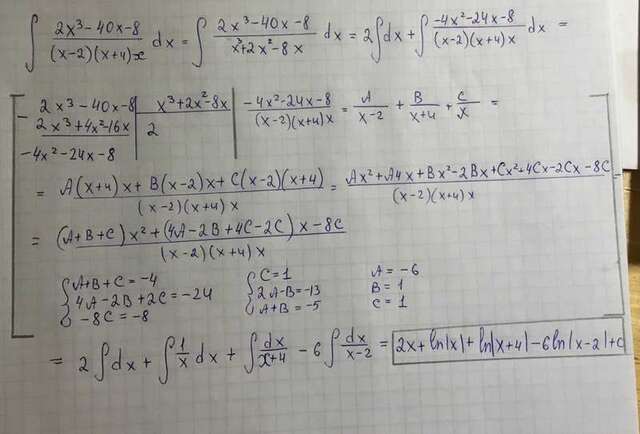 ∫ (2x³-40x-8)/((x-2)(x+4)x) dx = ∫ (2x³-40x-8)/(x³+2x²-8x) dx = 2∫dx + ∫ (-4x²-24x-8)/((x-2)(x+4)x) dx =
- 2x³-40x-8 | x³+2x²-8x
2x³+4x²-16x | 2
-4x²-24x-8
(-4x²-24x-8)/((x-2)(x+4)x) = A/(x-2) + B/(x+4) + C/x =
= (A(x+4)x + B(x-2)x + C(x-2)(x+4))/((x-2)(x+4)x) = (Ax²+A4x+Bx²-2Bx+Cx²+4Cx-2Cx-8C)/((x-2)(x+4)x) =
= ((A+B+C)x²+(4A-2B+4C-2C)x-8C)/((x-2)(x+4)x)
{ A+B+C=-4 { C=1 A=-6
4A-2B+2C=-24 2A-B=-13 B=1
-8C=-8 A+B=-5 C=1
= 2∫dx + ∫ 1/x dx + ∫ dx/(x+4) - 6∫ dx/(x-2) = 2x+ln|x|+ln|x+4|-6ln|x-2|+C